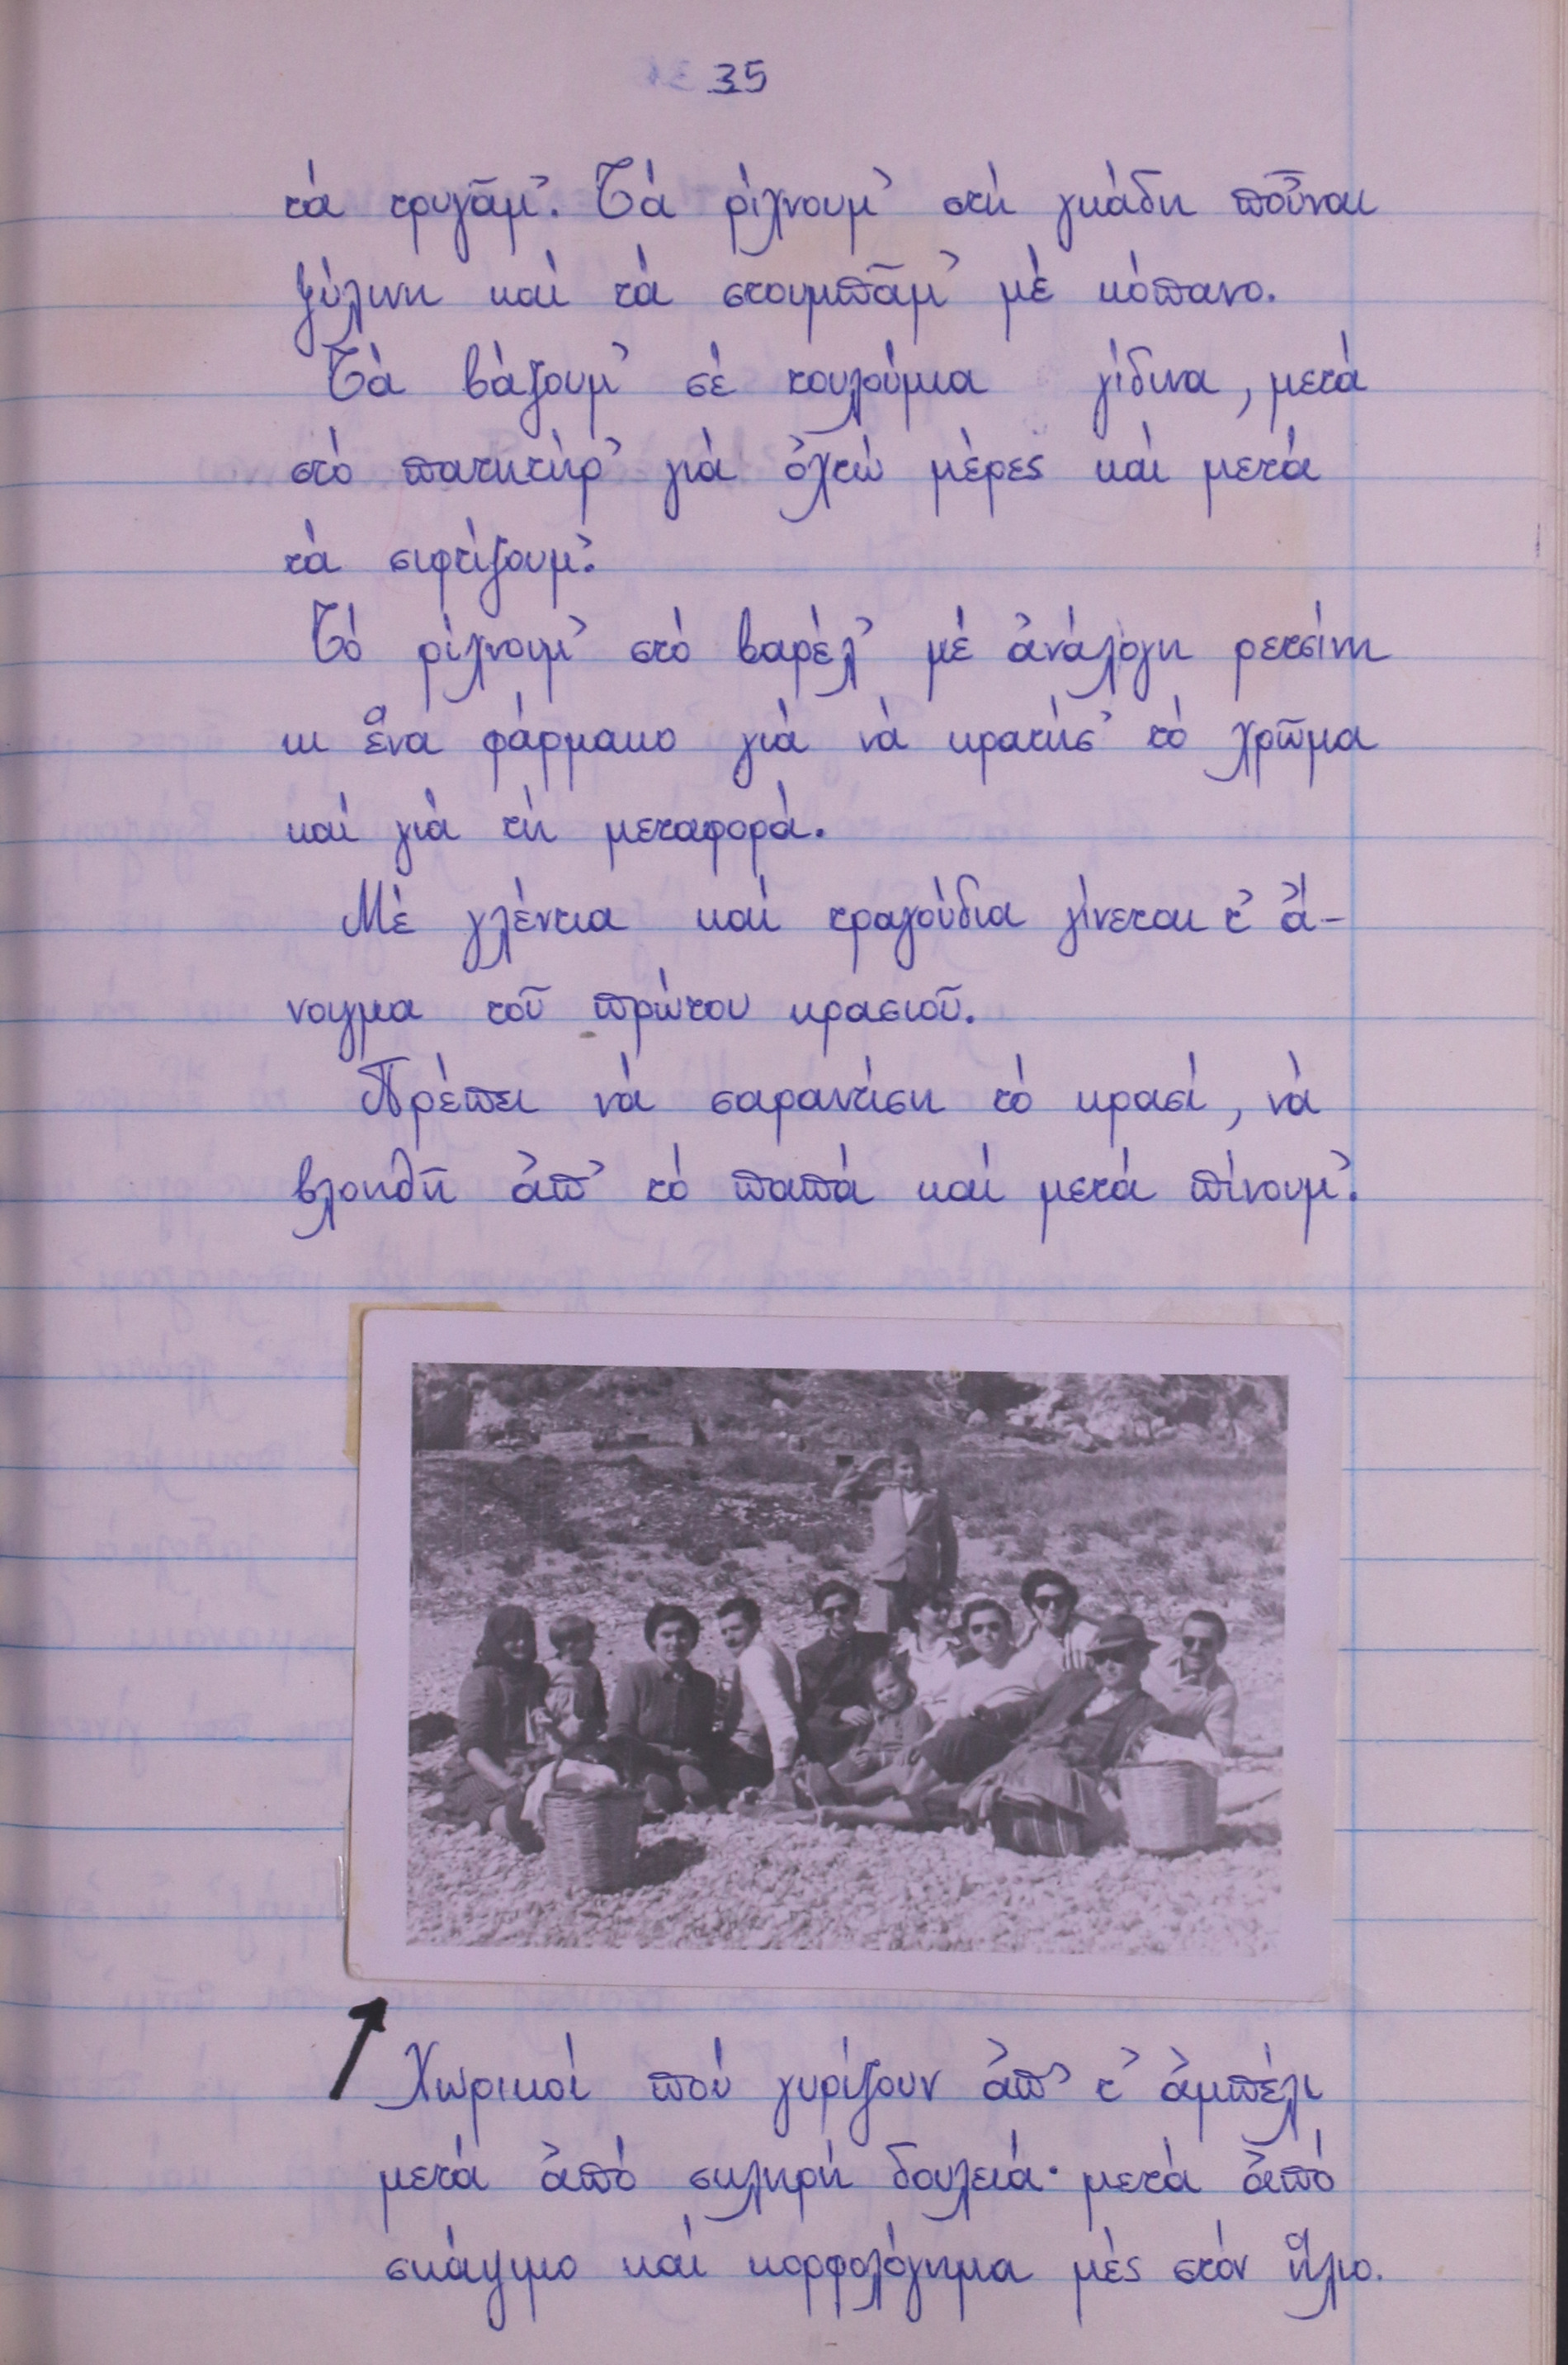 35
τά τρυγᾶμ᾿. Τά ρίχνουμ᾿ στή γκάδη ποὖναι
ξύλινη καί τά στουμπᾶμ᾿ μέ κόπανο.
Τά βάζουμ᾿ σέ τουλούμια γίδινα, μετά
στό πατητήρ᾿ γιά ὀχτώ μέρες καί μετά
τά σιφτίζουμ᾿.
Τό ρίχνουμ᾿ στό βαρέλ᾿ μέ ἀνάλογη ρετσίνη
κι ἕνα φάρμακο γιά νά κρατήσ᾿ τό χρῶμα
καί γιά τή μεταφορά.
Μέ γλέντια καί τραγούδια γίνεται τ᾿ ἄ-
νοιγμα τοῦ πρώτου κρασιοῦ.
Πρέπει νά σαραντίση τό κρασί, νά
βλοηθῆ ἀπ᾿ τό παπά καί μετά πίνουμ᾿.
Χωρικοί πού γυρίζουν ἀπ᾿ τ᾿ ἀμπέλι
μετά ἀπό σκληρή δουλειά· μετά ἀπό
σκάψιμο καί κορφολόγημα μές στόν ἥλιο.